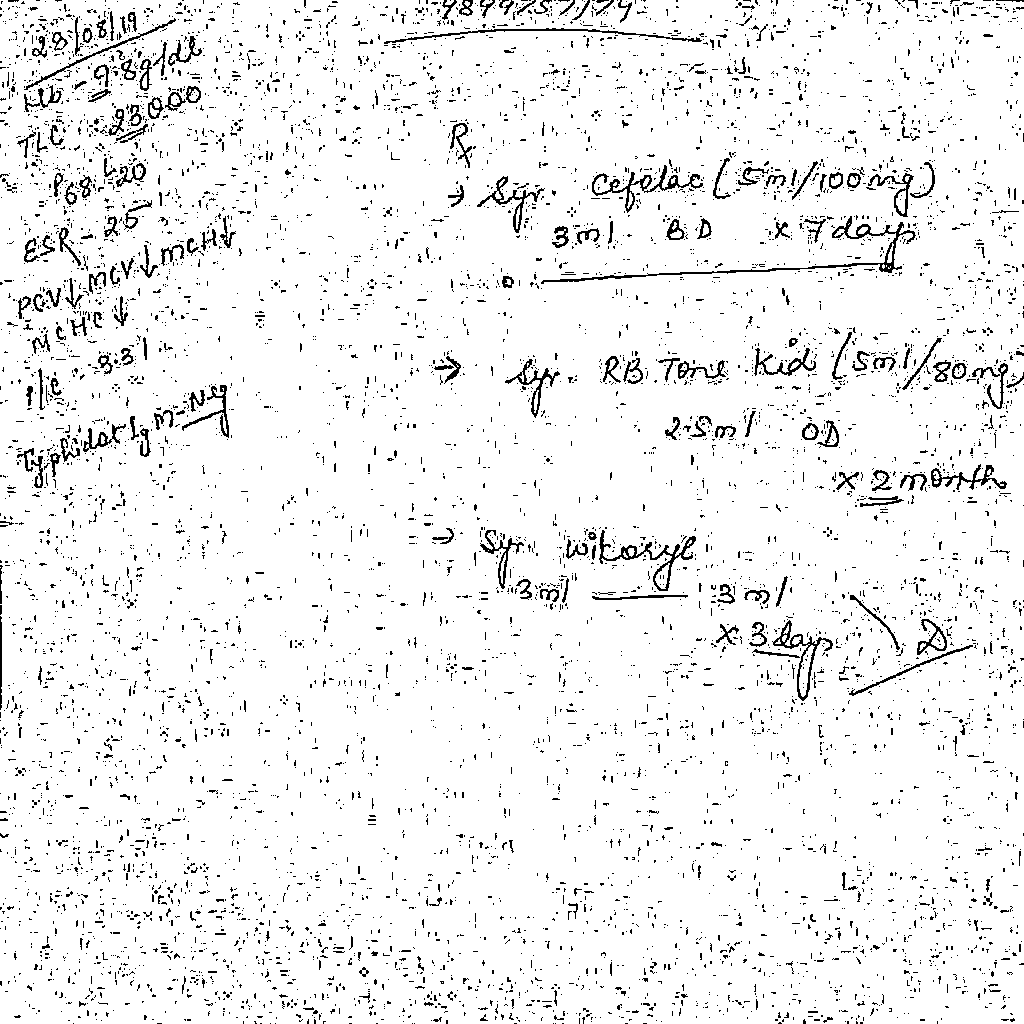 23/08/19
Hb - 9.8g/dl
TLC - 23000
P68 L20
ESR - 25
PCV↓ MCV↓ MCH↓
MCHC ↓
P/C - 3.31
Typhidot IgM - Neg
Rx
→ Syr. Cefolac (5ml/100mg)
3ml BD x 7days
→ Syr. RB Tone Kid (5ml/80mg)
2.5ml OD
x 2 month
→ Syr. Wikoryl
3ml — 3ml
x 3 days